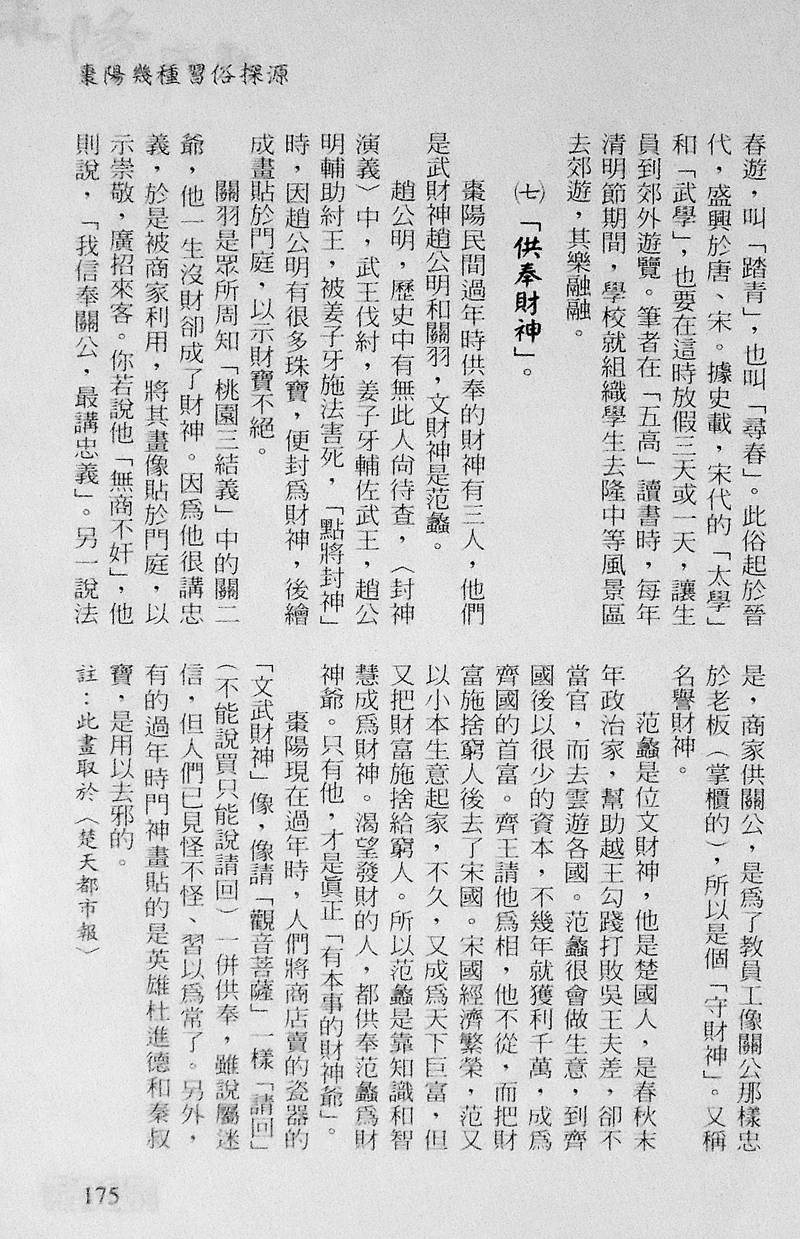 棗陽幾種習俗探源
春遊，叫「踏青」，也叫「尋春」。此俗起於晉
代，盛興於唐、宋。據史載，宋代的「太學」
和「武學」，也要在這時放假三天或一天，讓生
員到郊外遊覽。筆者在「五高」讀書時，每年
清明節期間，學校就組織學生去隆中等風景區
去郊遊，其樂融融。
㈦「供奉財神」。
棗陽民間過年時供奉的財神有三人，他們
是武財神趙公明和關羽，文財神是范蠡。
趙公明，歷史中有無此人尚待查，〈封神
演義〉中，武王伐紂，姜子牙輔佐武王，趙公
明輔助紂王，被姜子牙施法害死，「點將封神」
時，因趙公明有很多珠寶，便封爲財神，後繪
成畫貼於門庭，以示財寶不絕。
關羽是眾所周知「桃園三結義」中的關二
爺，他一生沒財卻成了財神。因爲他很講忠
義，於是被商家利用，將其畫像貼於門庭，以
示崇敬，廣招來客。你若說他「無商不奸」，他
則說，「我信奉關公，最講忠義」。另一說法
是，商家供關公，是爲了教員工像關公那樣忠
於老板（掌櫃的），所以是個「守財神」。又稱
名譽財神。
范蠡是位文財神，他是楚國人，是春秋末
年政治家，幫助越王勾踐打敗吳王夫差，卻不
當官，而去雲遊各國。范蠡很會做生意，到齊
國後以很少的資本，不幾年就獲利千萬，成爲
齊國的首富。齊王請他爲相，他不從，而把財
富施捨窮人後去了宋國。宋國經濟繁榮，范又
以小本生意起家，不久，又成爲天下巨富，但
又把財富施捨給窮人。所以范蠡是靠知識和智
慧成爲財神。渴望發財的人，都供奉范蠡爲財
神爺。只有他，才是眞正「有本事的財神爺」。
棗陽現在過年時，人們將商店賣的瓷器的
「文武財神」像，像請「觀音菩薩」一樣「請回」
（不能說買只能說請回）一併供奉，雖說屬迷
信，但人們已見怪不怪、習以爲常了。另外，
有的過年時門神畫貼的是英雄杜進德和秦叔
寶，是用以去邪的。
註：此畫取於〈楚天都市報〉
175